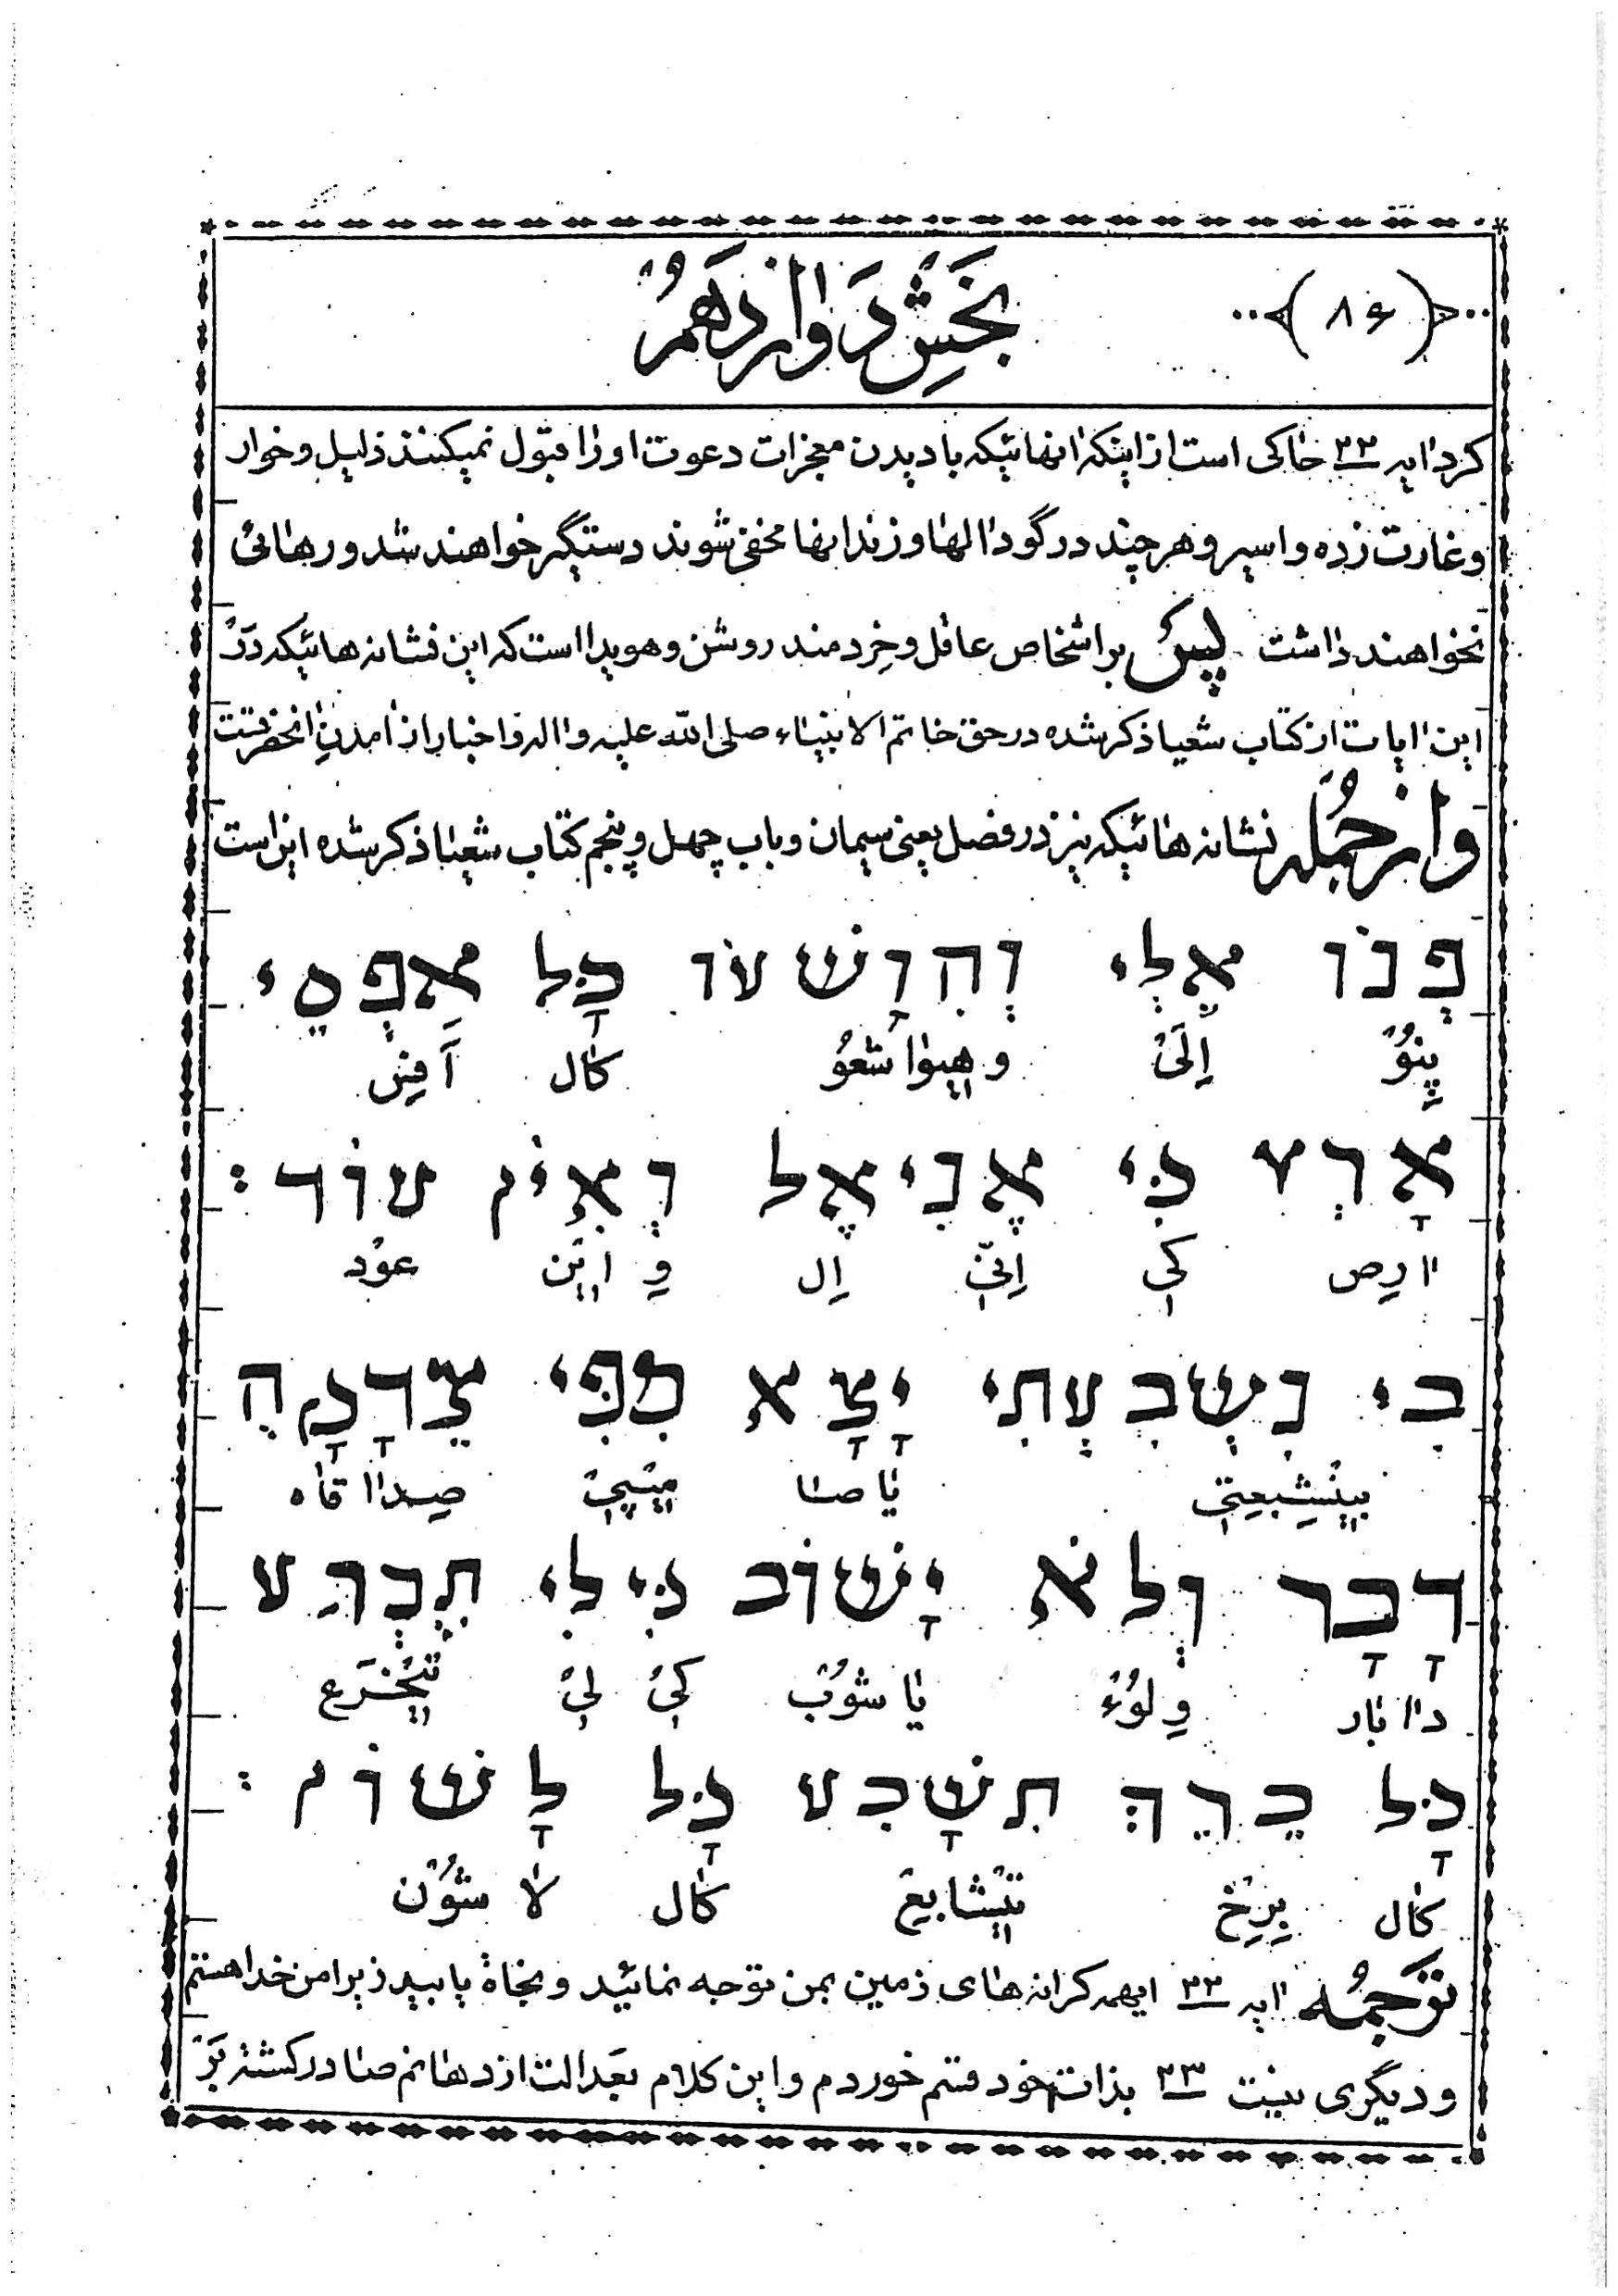 ﴿ ۸۶ ﴾ بَخشِ دَوازدَهمُ
کرد ایه ۲۲ حاکی است از اینکه انهائیکه با دیدن معجزات دعوت او را قبول نمیکنند ذلیل و خوار
و غارت زده و اسیر و هر چند در گودالها و زندانها مخفی شوند دستگیر خواهند شد و رهائی
نخواهند داشت پس بر اشخاص عاقل و خِردمند روشن و هویدا است که این نشانه هائیکه دَر
این ایات از کتاب شعیا ذکر شده در حق خاتم الانبیاء صلی الله علیه و اله و اخبار از امدنِ انحضرتست
و از جُمله نشانه هائیکه نیز در فصل یعنی سیمان و باب چهل و پنجم کتاب شعیا ذکر شده این است
פְּנוּ אֵלַי וְהִוָּשְׁעוּ כָּל אַפְסֵי
پِنوُ اِلَیْ و هیواشعوُ کال اَفِس
אָרֶץ כִּי אֲנִי אֵל וְאֵין עוֹד :
اارِص کی اِنّی اِل وِ ایِن عوْد
בִּי נִשְׁבַּעְתִּי יָצָא מִפִּי צְדָקָה
بینْشِبعِتی یاصا میْپیْ صِداا قاه
דָּבָר וְלֹא יָשׁוּב כִּי לִי תִּכְרַע
داا بار وِ لوُءْ یا شوُبْ کیْ لیْ تیْخْرَع
כָּל בֶּרֶךְ תִּשָּׁבַע כָּל לָשׁוֹן :
کال بِرِخْ تیْشابِعْ کال لا شوُن
تَرجُمه ایه ۲۲ ایهمه کرانه های زمین بمن توجه نمائید و نجاة یابید زیرا من خدا هستم
و دیگری نیست ۲۳ بذات خود قسم خوردم و این کلام بعَدالت از دهانم صادر گشته بَرْ